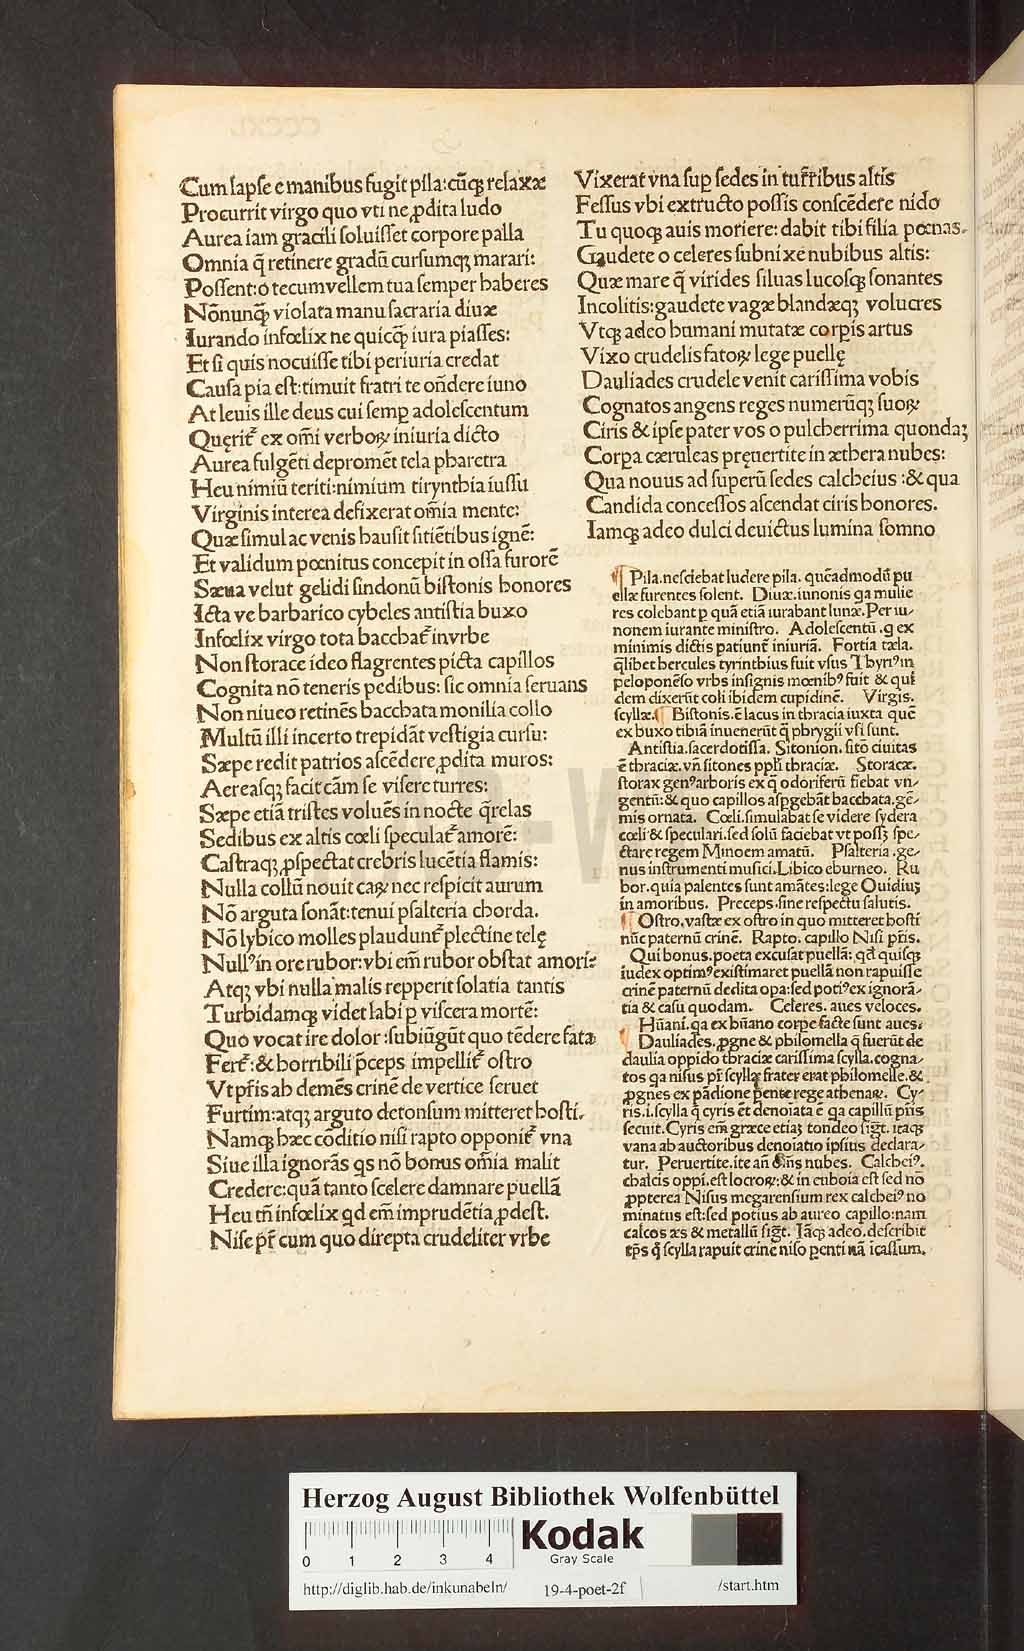 Cum lapse e manibus fugit pila: cūqꝫ relaxæ
Procurrit virgo quo vti ne ꝓdita ludo
Aurea iam gracili soluisset corpore palla
Omnia q̄ retinere gradū cursumqꝫ marari:
Possent: o tecum vellem tua semper haberes
Nōnunq̄ violata manu sacraria diuæ
Iurando infœlix ne quicq̄ iura piasses:
Et si quis nocuisse tibi periuria credat
Causa pia est: timuit fratri te oñdere iuno
At leuis ille deus cui semꝑ adolescentum
Quęrit᷑ ex om̄i verboꝝ iniuria dicto
Aurea fulgēti depromēt tela pharetra
Heu nimiū teriti: nimium tirynthia iussu
Virginis interea defixerat om̄ia mente:
Quæ simul ac venis hausit sitiētibus ignē:
Et validum pœnitus concepit in ossa furorē
Sæua velut gelidi sindonū bistonis honores
Icta ve barbarico cybeles antistia buxo
Infœlix virgo tota bacchat᷑ in vrbe
Non storace ideo flagrentes picta capillos
Cognita nō teneris pedibus: sic omnia seruans
Non niueo retinēs bacchata monilia collo
Multū illi incerto trepidāt vestigia cursu:
Sæpe redit patrios ascēdere ꝓdita muros:
Aereasqꝫ facit cām se visere turres:
Sæpe etiā tristes voluēs in nocte q̄relas
Sedibus ex altis cœli speculat᷑ amorē:
Castraqꝫ ꝓspectat crebris lucētia flamis:
Nulla collū nouit caꝝ nec respicit aurum
Nō arguta sonāt: tenui psalteria chorda.
Nō lybico molles plaudunt᷑ plectine telę
Null⁹ in ore rubor: vbi em̄ rubor obstat amori:
Atqꝫ vbi nulla malis repperit solatia tantis
Turbidamqꝫ videt labi ꝑ viscera mortē:
Quo vocat ire dolor: subiūgūt quo tēdere fata
Fert᷑: & horribili p̄ceps impellit᷑ ostro
Vt pr̄is ab demēs crinē de vertice seruet
Furtim: atqꝫ arguto detonsum mitteret hosti.
Namqꝫ hæc cōditio nisi rapto opponit᷑ vna
Siue illa ignorās qs nō bonus om̄ia malit
Credere: quā tanto scelere damnare puellā
Heu tn̄ infœlix qd em̄ imprudētia ꝓdest.
Nise pr̄ cum quo direpta crudeliter vrbe
Vixerat vna suꝑ sedes in turribus altis
Fessus vbi extructo possis conscēdere nido
Tu quoqꝫ auis moriere: dabit tibi filia pœnas.
Gaudete o celeres subnixe nubibus altis:
Quæ mare q̄ virides siluas lucosqꝫ sonantes
Incolitis: gaudete vagæ blandæqꝫ volucres
Vtqꝫ adeo humani mutatæ corꝑis artus
Vixo crudelis fatoꝝ lege puellę
Dauliades crudele venit carissima vobis
Cognatos angens reges numerūqꝫ suoꝝ
Ciris & ipse pater vos o pulcherrima quondaꝫ
Corꝑa cæruleas pręuertite in æthera nubes:
Qua nouus ad superū sedes calcheius: & qua
Candida concessos ascendat ciris honores.
Iamqꝫ adeo dulci deuictus lumina somno
¶ Pila. nesciebat ludere pila. quēadmodū pu
ellæ furentes solent. Diuæ. iunonis qa mulie
res colebant ꝑ quā etiā iurabant lunæ. Per iu-
nonem iurante ministro. Adolescentū. q ex
minimis dictis patiunt᷑ iniuriā. Fortia tæla.
q̄libet hercules tyrinthius fuit vsus Thyri⁹ in
peloponēso vrbs insignis mœnib⁹ fuit & qui
dem dixerūt coli ibidem cupidinē. Virgis.
scyllæ. ¶ Bistonis. ē lacus in thracia iuxta quē
ex buxo tibiā inuenerūt q̄ phrygii vsi sunt.
Antistia. sacerdotissa. Sitonion. sitō ciuitas
ē thraciæ. vñ sitones ppl'i thraciæ. Storacæ.
storax gen⁹ arboris ex q̄ odoriferū fiebat vn-
gentū: & quo capillos aspgebāt bacchata. gē-
mis ornata. Cœli. simulabat se videre sydera
cœli & speculari. sed solū faciebat vt possꝫ spe-
ctare regem Minoem amatū. Psalteria. ge-
nus instrumenti musici. Libico eburneo. Ru
bor. quia palentes sunt amātes: lege Ouidiuꝫ
in amoribus. Preceps. sine respectu salutis.
¶ Ostro. vastæ ex ostro in quo mitteret hosti
nūc paternū crinē. Rapto. capillo Nisi pr̄is.
Qui bonus. poeta excusat puellā: qd quisqꝫ
iudex optim⁹ existimaret puellā non rapuisse
crinē paternū dedita opa: sed poti⁹ ex ignorā-
tia & casu quodam. Celeres. aues veloces.
Hūani. qa ex hūano corpe facte sunt aues.
¶ Dauliades. ꝓgne & philomella q̄ fuerūt de
daulia oppido thraciæ carissima scylla. cogna-
tos qa nisus pr̄ scyllæ frater erat philomelle. &
ꝓgnes ex pādione p̄ente rege athenaꝝ. Cy-
ris. i. scylla q̄ cyris ēt denoīata ē qa capillū pr̄is
secuit. Cyris em̄ græce etiaꝫ tondeo sigt. itaqꝫ
vana ab auctoribus denoīatio ipsius declara-
tur. Peruertite. ite añ oēs nubes. Calchei⁹.
chalcis oppi. est locroꝝ: & in euboia est sed nō
ꝓpterea Nisus megarensium rex calchei⁹ no
minatus est: sed potius ab aureo capillo: nam
calcos æs & metallū sigt. Iāqꝫ adeo. describit
tp̄s q̄ scylla rapuit crinē niso penti nā icassum.
Herzog August Bibliothek Wolfenbüttel
0 1 2 3 4
Kodak
Gray Scale
http://diglib.hab.de/inkunabeln/ 19-4-poet-2f /start.htm